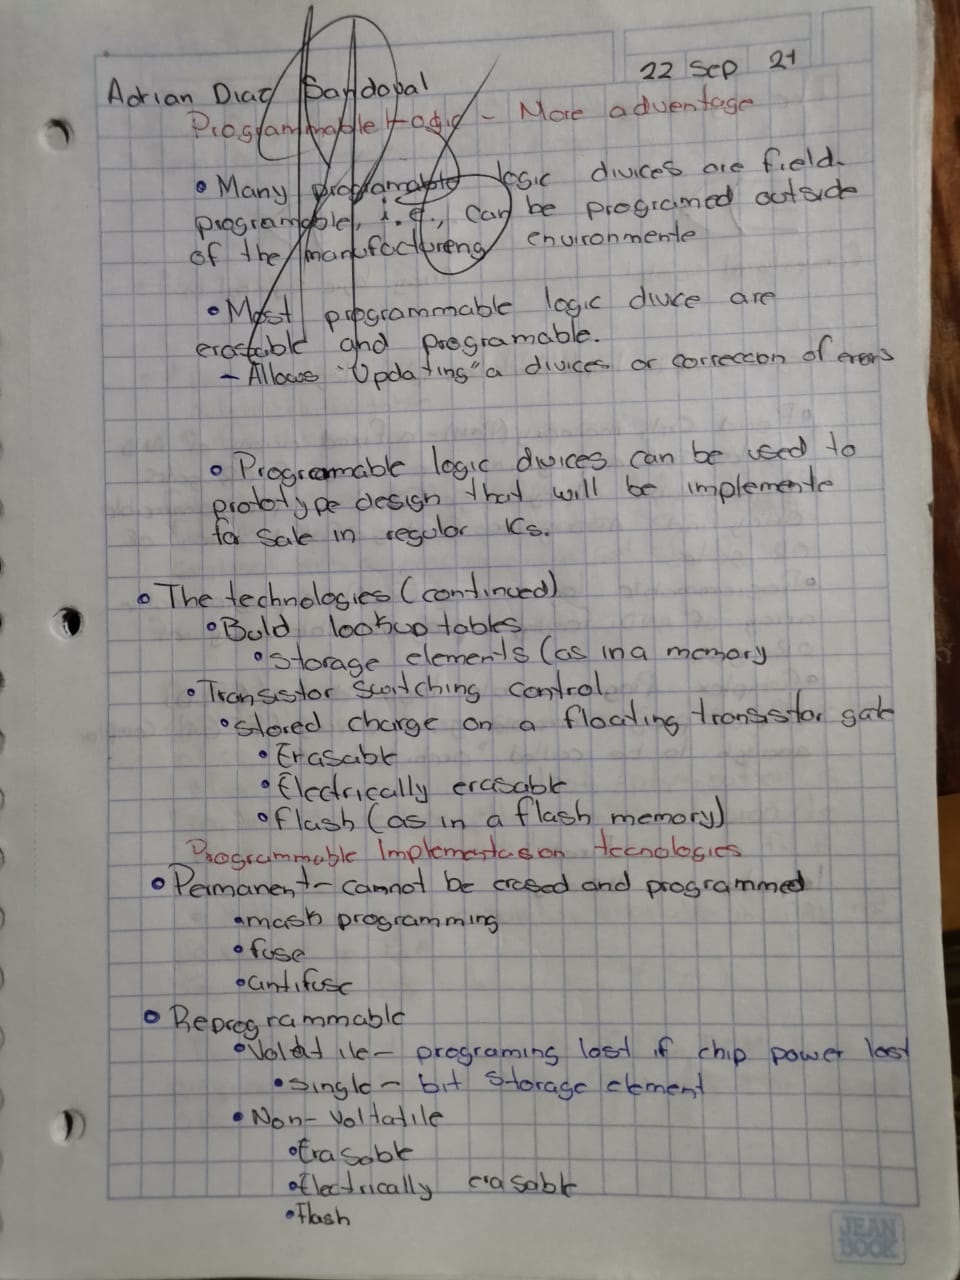 22 Sep 21
Adrian Diaz Sandoval
Programmable Logic - More adventage
• Many programable logic divices are field-
programable, i.e., can be programed outside
of the manufactureng environmente
• Most programmable logic divce are
erastable and programable.
- Allows "Updating" a divices or correccon of erors
• Programmable logic divices can be used to
prototype design that will be implemente
for sale in regular ICs.
• The technologies (continued)
• Buld lookup tables
• Storage elements (as in a memory
• Transistor Switching control
• Stored charge on a floating transistor gate
• Erasable
• Electrically erasable
• flash (as in a flash memory)
Programmable Implementason tecnologies
• Permanent - cannot be erased and programmed
• mask programming
• fuse
• antifuse
• Reprogrammable
• Volatile - programing lost if chip power lost
• Single - bit Storage element
• Non-Voltatile
• Erasable
• Electrically erasable
• Flash
JEAN
BOOK